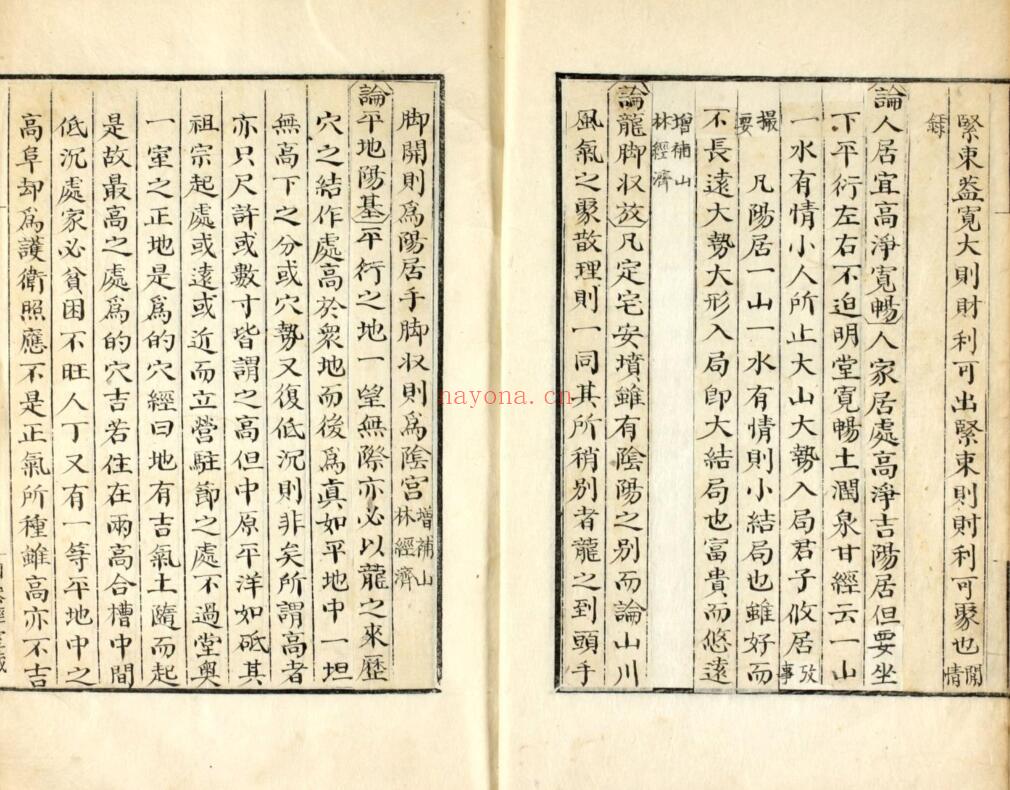 緊束蓋寬大則財利可出緊束則財利可聚也閒情
錄
論人居宜高淨寬暢人家居處高淨吉陽居但要坐
下平衍左右不迫明堂寬暢土潤泉甘經云一山
一水有情小人所止大山大勢入局君子攸居攷事
撮要　凡陽居一山一水有情則小結局也雖好而
不長遠大勢大形入局卽大結局也富貴而悠遠
增補山林經濟
論龍脚収放凡定宅安墳雖有陰陽之別而論山川
風氣之聚散理則一同其所稍別者龍之到頭手
脚開則爲陽居手脚収則爲陰宮增補山林經濟
論平地陽基平行之地一望無際亦必以龍之來歷
穴之結作處高於衆地而後爲眞如平地中一坦
無高下之分或穴勢又復低沉則非矣所謂高者
亦只尺許或數寸皆謂之高但中原平洋如砥其
祖宗起處或遠或近而立營駐節之處不過堂奧
一室之正地是爲的穴經曰地有吉氣土隨而起
是故最高之處爲的穴吉若住在兩高合槽中間
低沉處家必貧困不旺人丁又有一等平地中之
高阜却爲護衛照應不是正氣所種雖高亦不吉
nayona.cn